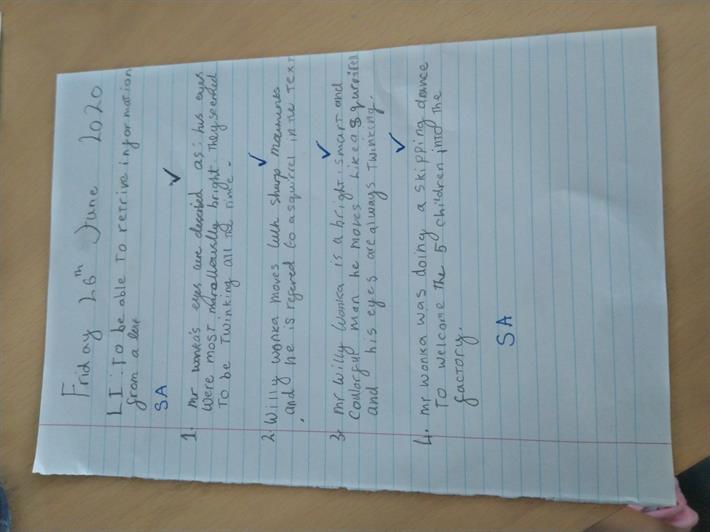 Friday 26th June 2020
LI: To be able to retrive information
from a
SA
1. Mr wonka's eyes are described as: his eyes
were most marallously bright. They seemed
to be Twinking all the time.
2. Willy wonka moves with sharp
and he is refered to a squirrel in the Text
.
3. Mr Willy Wonka is a bright, smart and
Coulorful man he moves Like a squrirel
and his eyes are always Twinking.
4. Mr wonka was doing a skipping dance
To welcome the 5 children into the
factory.
SA